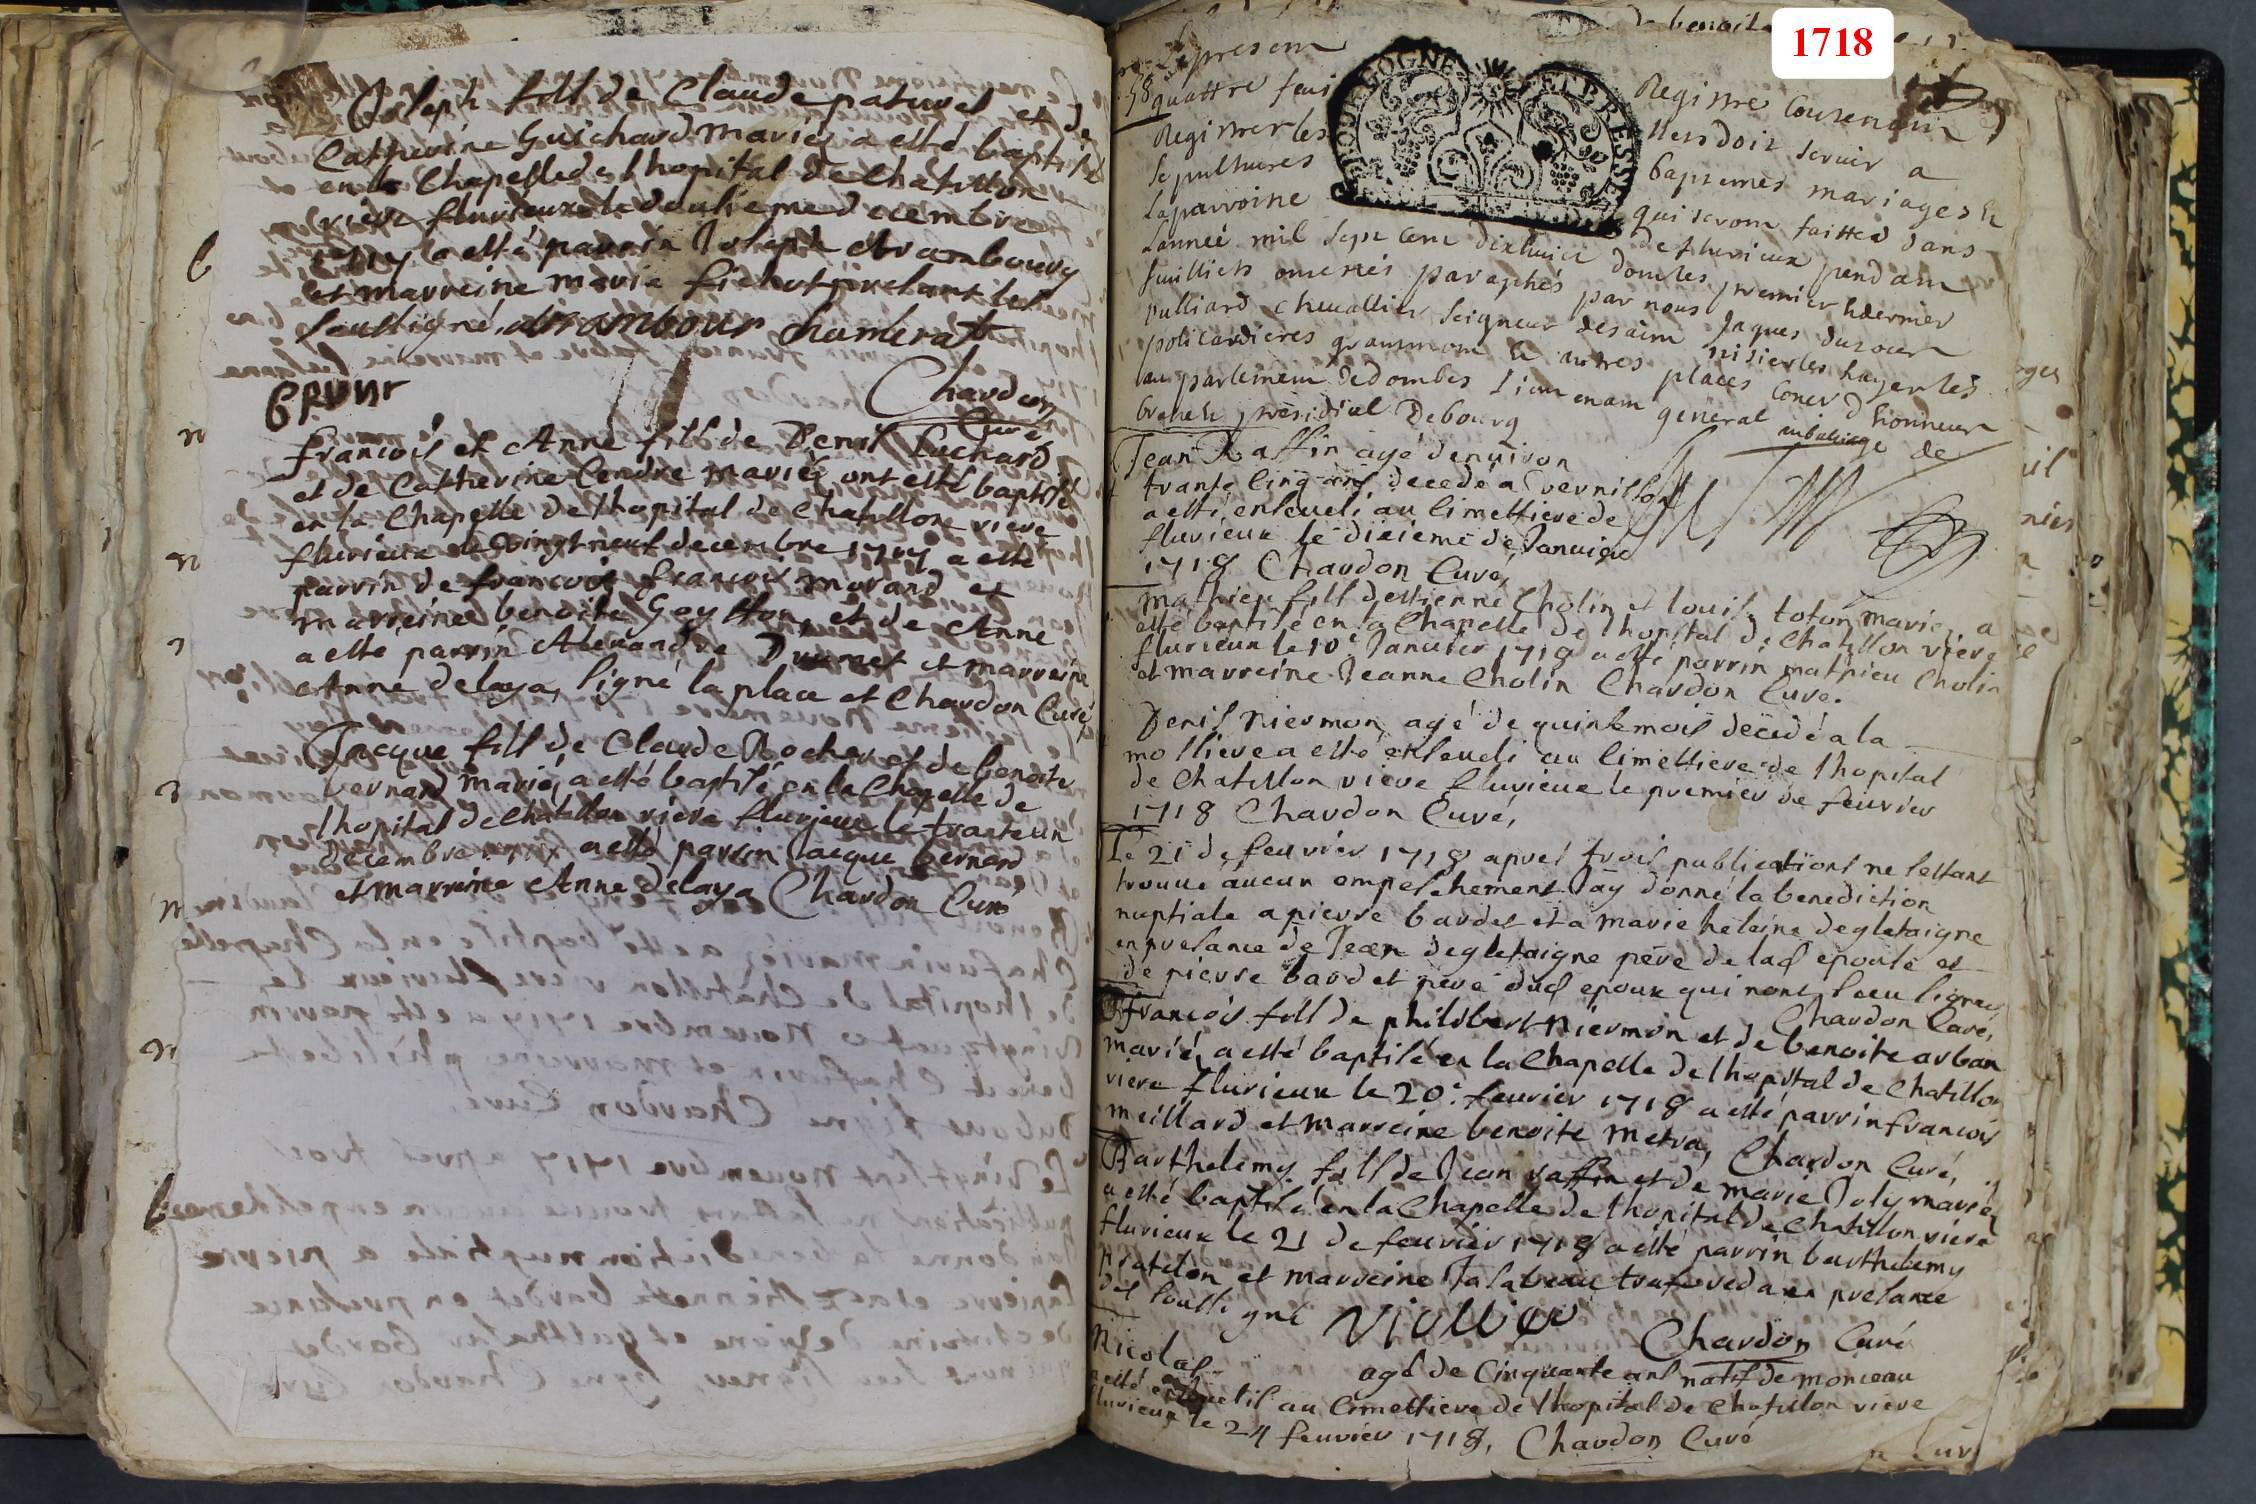 Joseph fils de Claude paturel et de
Catherine Guichard mariés a esté baptisé
en la Chapelle de lhopital de Chatillon
riere flurieux le douzieme decembre
1717 a esté parrin Joseph
et marreine marie presant les
soussigné, Chamerat
Brunr Chardon
Curé
francois et Anne fils de Denis Luchard
et de Catherine Cendre mariés ont esté baptisé
en la Chapelle de lhopital de Chatillon riere
flurieux le vingt neuf decembre 1717 a esté
parrin de francois francois morand et
marreine benoite Goyffon, et de Anne
a esté parrin Alexandre et marreine
Anne delaya, signé laplace et Chardon Curé
Jacque fils de Claude Rocher et de benoite
vernard mariés a esté baptisé en la Chapelle de
lhopital de Chatillon riere flurieux le trante un
decembre a esté parrin Jacque bernard
et marreine Anne delaya Chardon Curé
1718
de benoit
Le present Registre Contenant
quattre feui llets doit servir a
Registrer les baptemes mariages &
sepultures qui seront faittes dans
la parroine de flurieux pendant
lannee mil sept cent dixhuict dont les premier & dernier
feuillets ont estés paraphés par nous Jaques dusour
pulliard chevallier seigneur de saint nisier les hayer les
policardieres grammont & autres places Coner dhonneur
au parlement de dombes Lieutenant general au baliage de
bresse & presidial De bourg
Jean Raffin agé denviron
trante cinq ans decedé a vernillon
a esté enseveli au Cimettiere de
flurieux le dixieme de Janvier
1718 Chardon Curé,
mathieu fils destienne Cholin et louise toton mariés a
esté baptisé en la Chapelle de lhopital de Chatillon riere
flurieux le 10e Janvier 1718 a esté parrin mathieu Cholin
et marreine Jeanne Cholin Chardon Curé.
Denis niermon, agé de quinse mois decedé a la
mollliere a esté enseveli au Cimettiere de lhopital
de Chatillon riere flurieux le premier de fevrier
1718 Chardon Curé,
Le 21 de feuvrier 1718 apres trois publications ne sestant
trouvé aucun empeschement Jay donné la benediction
nuptiale a pierre bardet et a marie helaine degletaigne
en presance de Jean degletaigne pere de lad epouse et
de pierre bardet pere dud epoux qui nont sceu signer
Chardon Curé,
francois fils de philibert niermon et de benoite arban
mariés a esté baptisé en la Chapelle de lhopital de Chatillon
riere flurieux le 20e feuvrier 1718 a esté parrin francois
meillard et marreine benoite metra, Chardon Curé,
Barthelemy fils de Jean raffin et de marie Joly mariés
a esté baptisé en la Chapelle de lhopital de Chatillon riere
flurieux le 21 de feuvrier 1718 a esté parrin barthelemy
Pratelon et marreine Jsabeau en presance
des soussigné Viollier Chardon Curé
Nicolas agé de Cinquante ans natif de monceau
a esté enseveli au Cimettiere de lhopital de Chatillon riere
flurieux le 24 feuvrier 1718, Chardon Curé